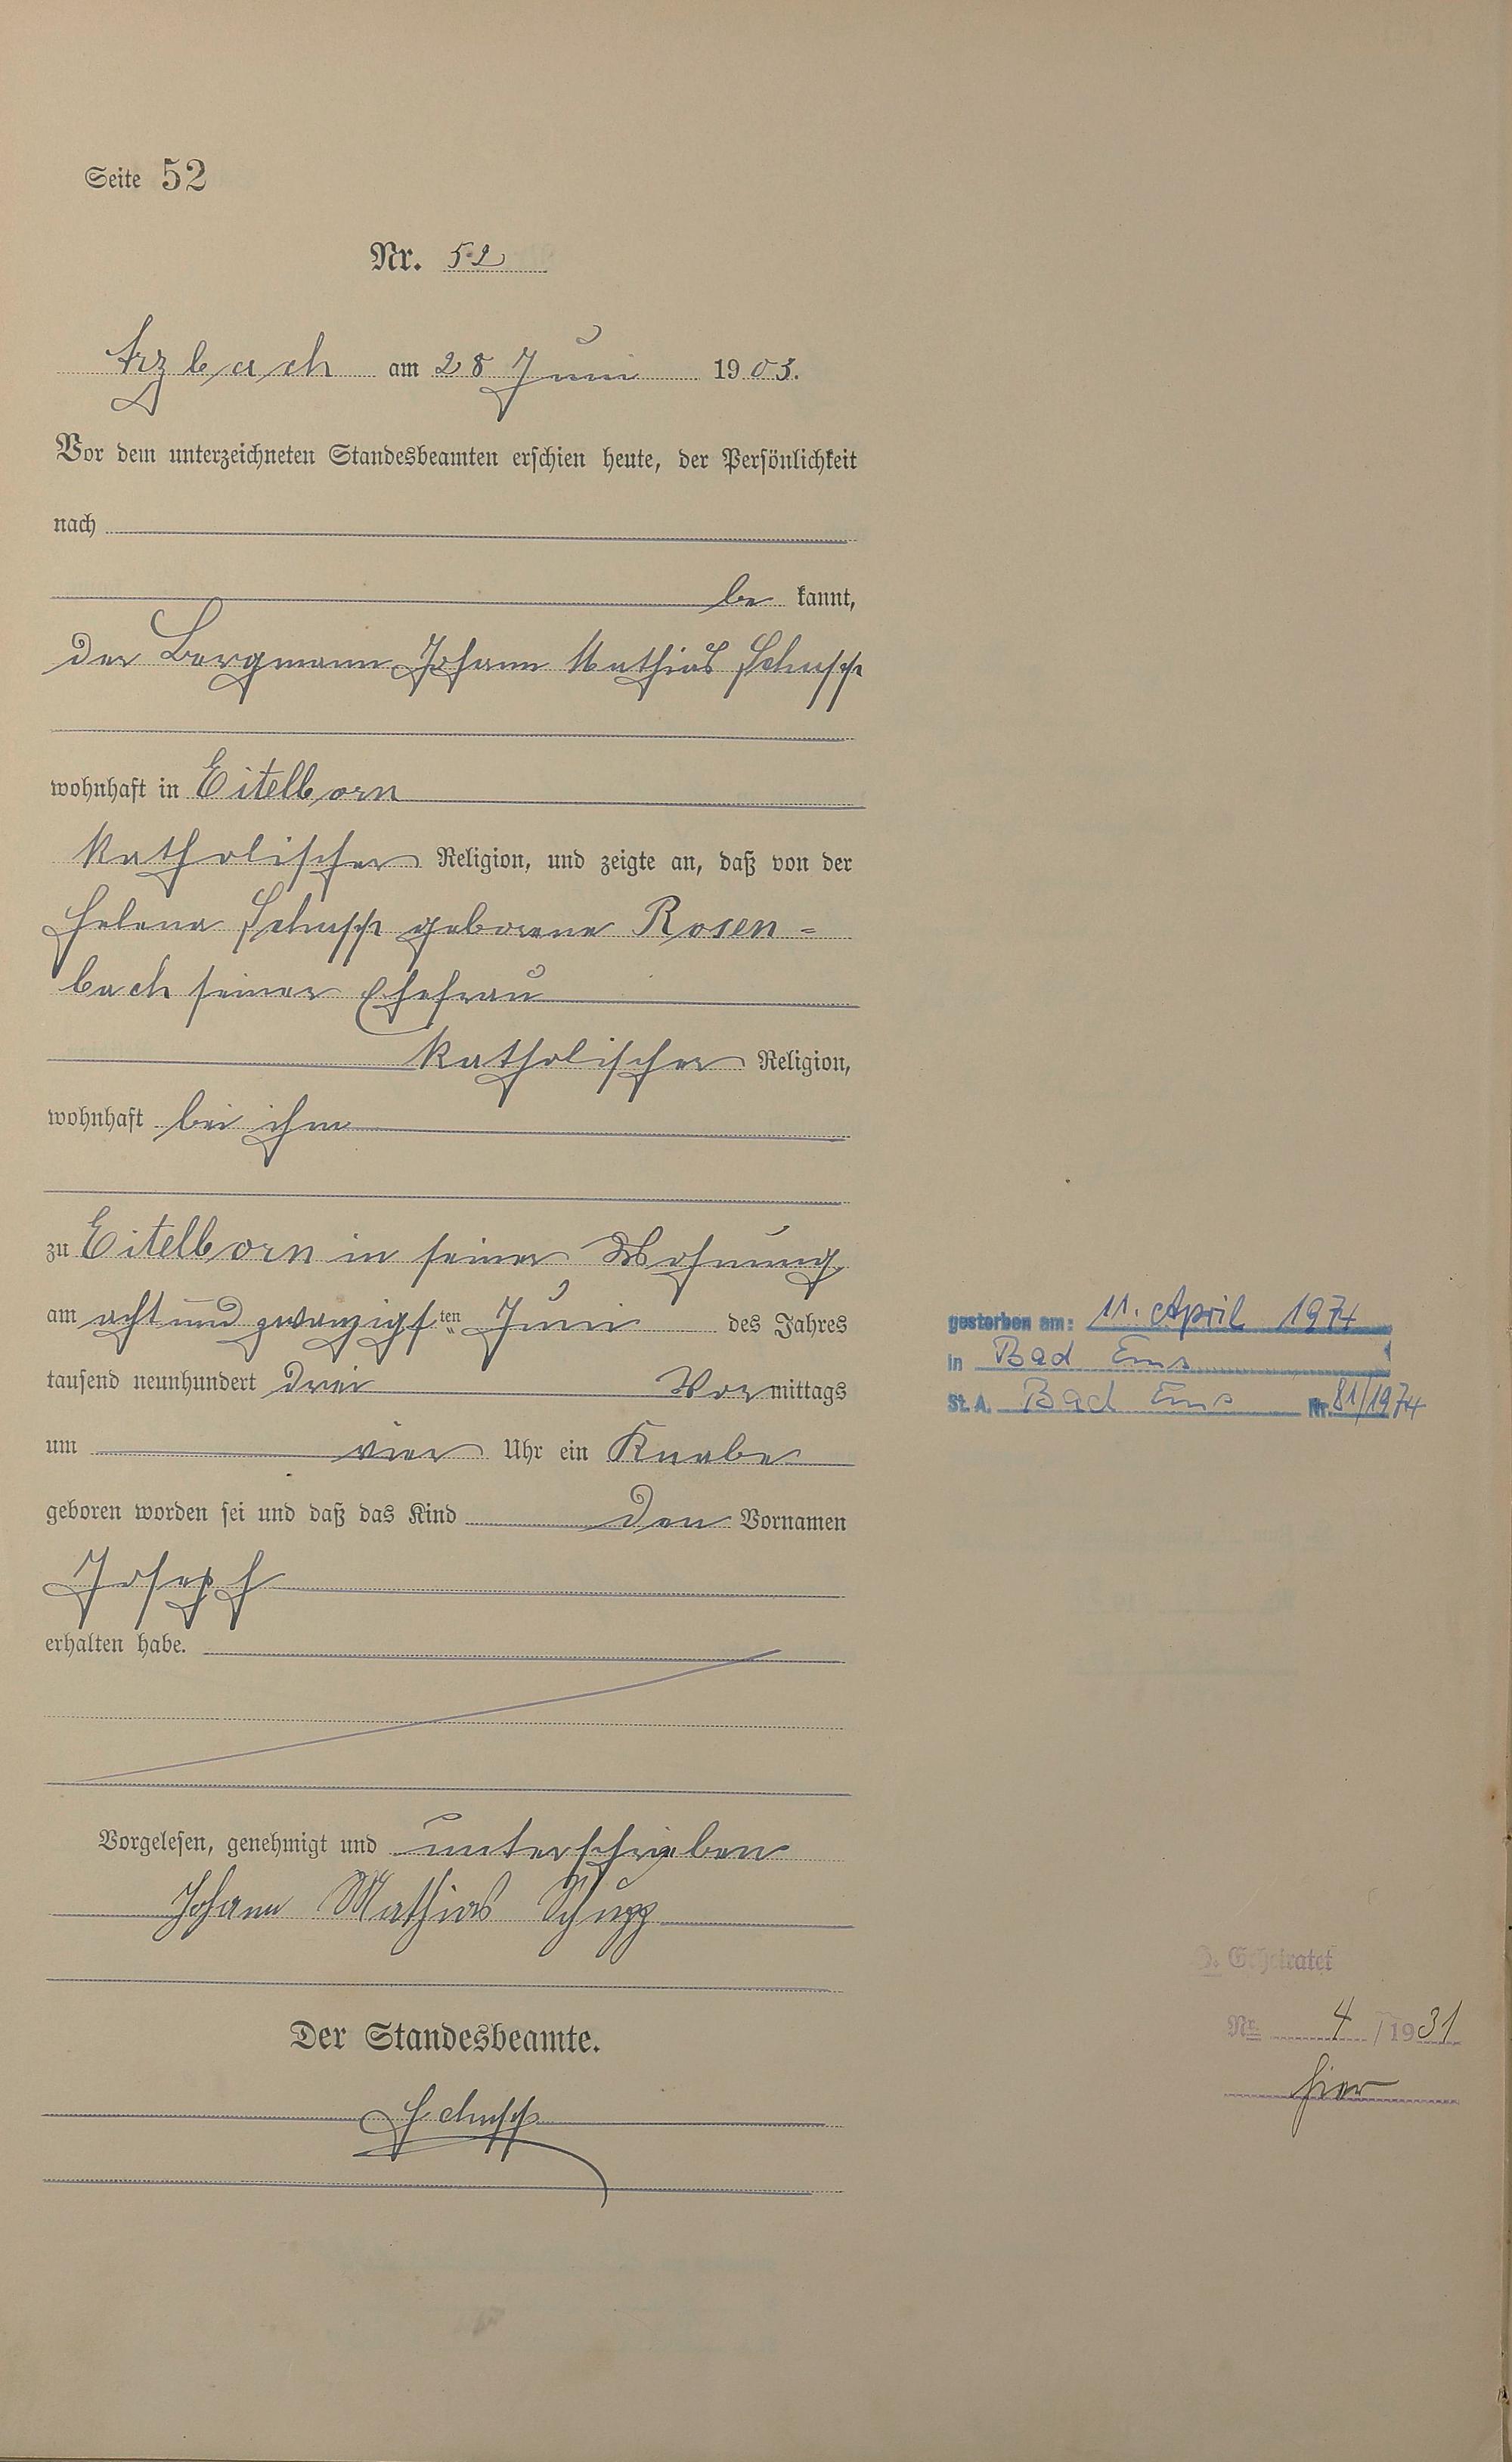 Seite 52
Nr. 52
Arzbach am 28 Juni 1903.
Vor dem unterzeichneten Standesbeamten erschien heute, der Persönlichkeit
nach
be kannt,
der Bergmann Johann Mathias Schupp
wohnhaft in Eitelborn
katholischer Religion, und zeigte an, daß von der
Helena Schupp geborene Rosen=
bach seiner Ehefrau
katholischer Religion,
wohnhaft bei ihm
zu Eitelborn in seiner Wohnung
am acht und zwanzigsten Juni des Jahres
tausend neunhundert drei Vormittags
um vier Uhr ein Knabe
geboren worden sei und daß das Kind den Vornamen
Joseph
erhalten habe.
Vorgelesen, genehmigt und unterschrieben
Johann Mathias Schupp
Der Standesbeamte.
Schupp
gestorben am: 11. April 1974
in Bad Ems
St. A. Bad Ems Nr. 81/1974
Geheiratet
Nr. 4 / 1931
hier